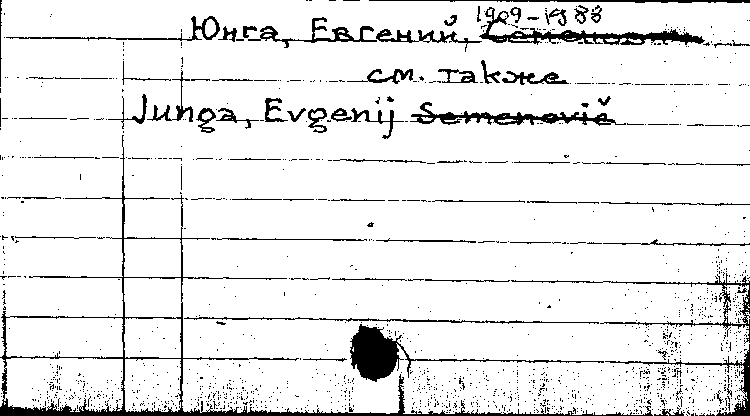 Юнга, Евгений, 1909-1988 Семенович
см. также
Junga, Evgenij Semenovič